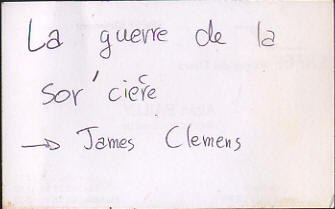 La guerre de la
sor'cière
→ James Clemens